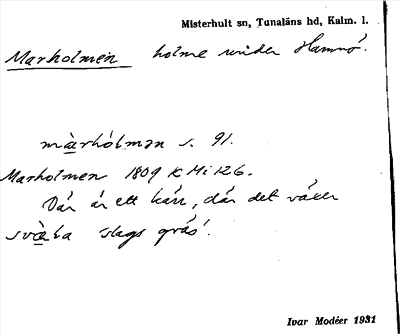 Misterhult sn, Tunaläns hd, Kalm. l.
Marholmen holme under Hamnö.
màrhólmən s. 91.
Marholmen 1809 K Mi 126.
Där är ett kärr, där det växer
svàba slags gräs.
Ivar Modéer 1931